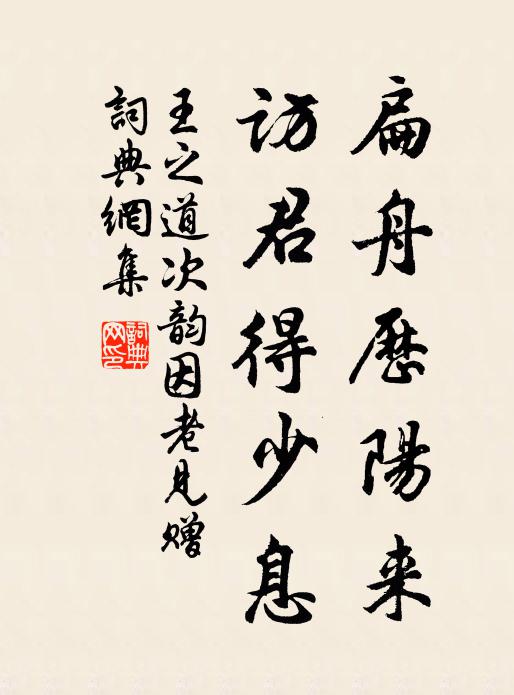 扁舟歷陽来
访君得少息
王之道次韵因老見赠
詞典網集
詞典网印